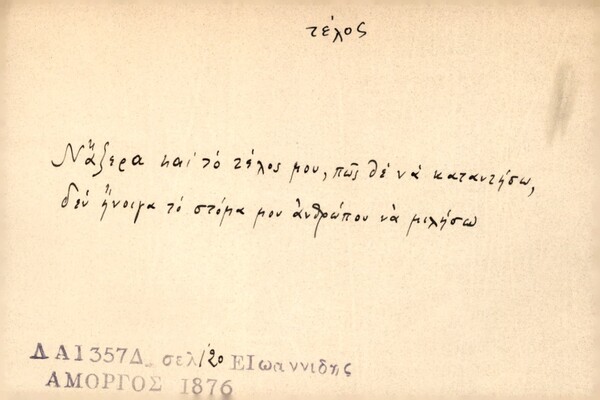 τέλος
Νἄξερα καὶ τὸ τέλος μου, πῶς θὲ νὰ καταντήσω,
δὲν ἤνοιγα τὸ στόμα μου ἀνθρώπου νὰ μιλήσω
ΔΑ1357Δ σελ 120 ΕΙωαννιδης
ΑΜΟΡΓΟΣ 1876